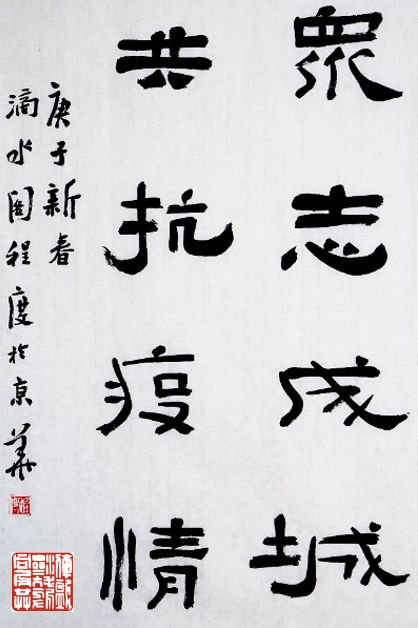 眾志成城
共抗疫情
庚子新春
滴水阁程度於京华